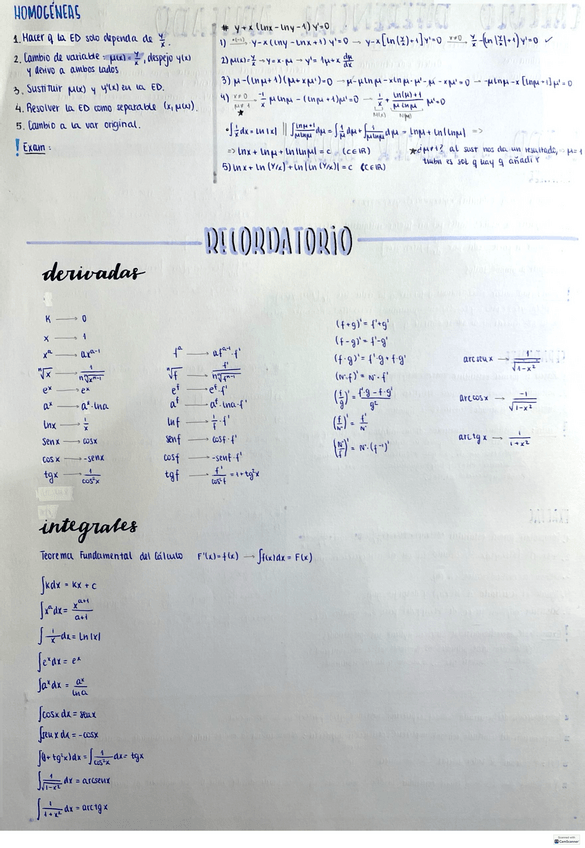 HOMOGÉNEAS
1. Hacer q la ED solo dependa de y/x.
2. Cambio de variable → μ(x) = y/x, despejo y(x)
y derivo a ambos lados
3. Sustituir μ(x) y y'(x) en la ED.
4. Resolver la ED como separable (x, μ(x)).
5. Cambio a la var original.
! Exam:
* y + x(lnx - lny - 1)y' = 0
1) y - x(lny - lnx + 1)y' = 0 → y - x[ln(y/x) + 1]y' = 0 x≠0 → y/x - [ln(y/x) + 1]y' = 0 ✓
2) μ(x) = y/x → y = x·μ → y' = 1μ + x dμ/dx
3) μ - (lnμ + 1)(μ + xμ') = 0
4)
⇒ lnx + lnμ + ln|lnμ| = c (c∈ℝ)
5) lnx + ln(y/x) + ln|ln(y/x)| = c (c∈ℝ)
RECORDATORIO
derivadas
K → 0
x → 1
xᵃ → axᵃ⁻¹
ⁿ√x → 1/(n ⁿ√xⁿ⁻¹)
eˣ → eˣ
aˣ → aˣ·lna
lnx → 1/x
senx → cosx
cosx → -senx
tgx → 1/cos²x
fᵃ → afᵃ⁻¹·f'
ⁿ√f → f'/(n ⁿ√fⁿ⁻¹)
eᶠ → eᶠ·f'
aᶠ → aᶠ·lna·f'
lnf → 1/f·f'
senf → cosf·f'
cosf → -senf·f'
tgf → f'/cos²f = 1+tg²x
(f+g)' = f'+g'
(f-g)' = f'-g'
(f·g)' = f'·g + f·g'
(N·f)' = N·f'
(f/g)' = (f'·g - f·g')/g²
(f/N)' = f'/N
(N/f)' = N·(f⁻¹)'
arcsenx → 1/√(1-x²)
arccosx → -1/√(1-x²)
arctgx → 1/(1+x²)
integrales
Teorema Fundamental del Cálculo F'(x) = f(x) → ∫f(x)dx = F(x)
∫kdx = Kx + c
∫xᵃdx = xᵃ⁺¹/(a+1)
∫1/x dx = Ln|x|
∫eˣdx = eˣ
∫aˣdx = aˣ/lna
∫cosx dx = senx
∫senx dx = -cosx
∫(1+tg²x)dx = ∫1/cos²x dx = tgx
∫1/√(1-x²) dx = arcsenx
∫1/(1+x²) dx = arctgx
CamScanner